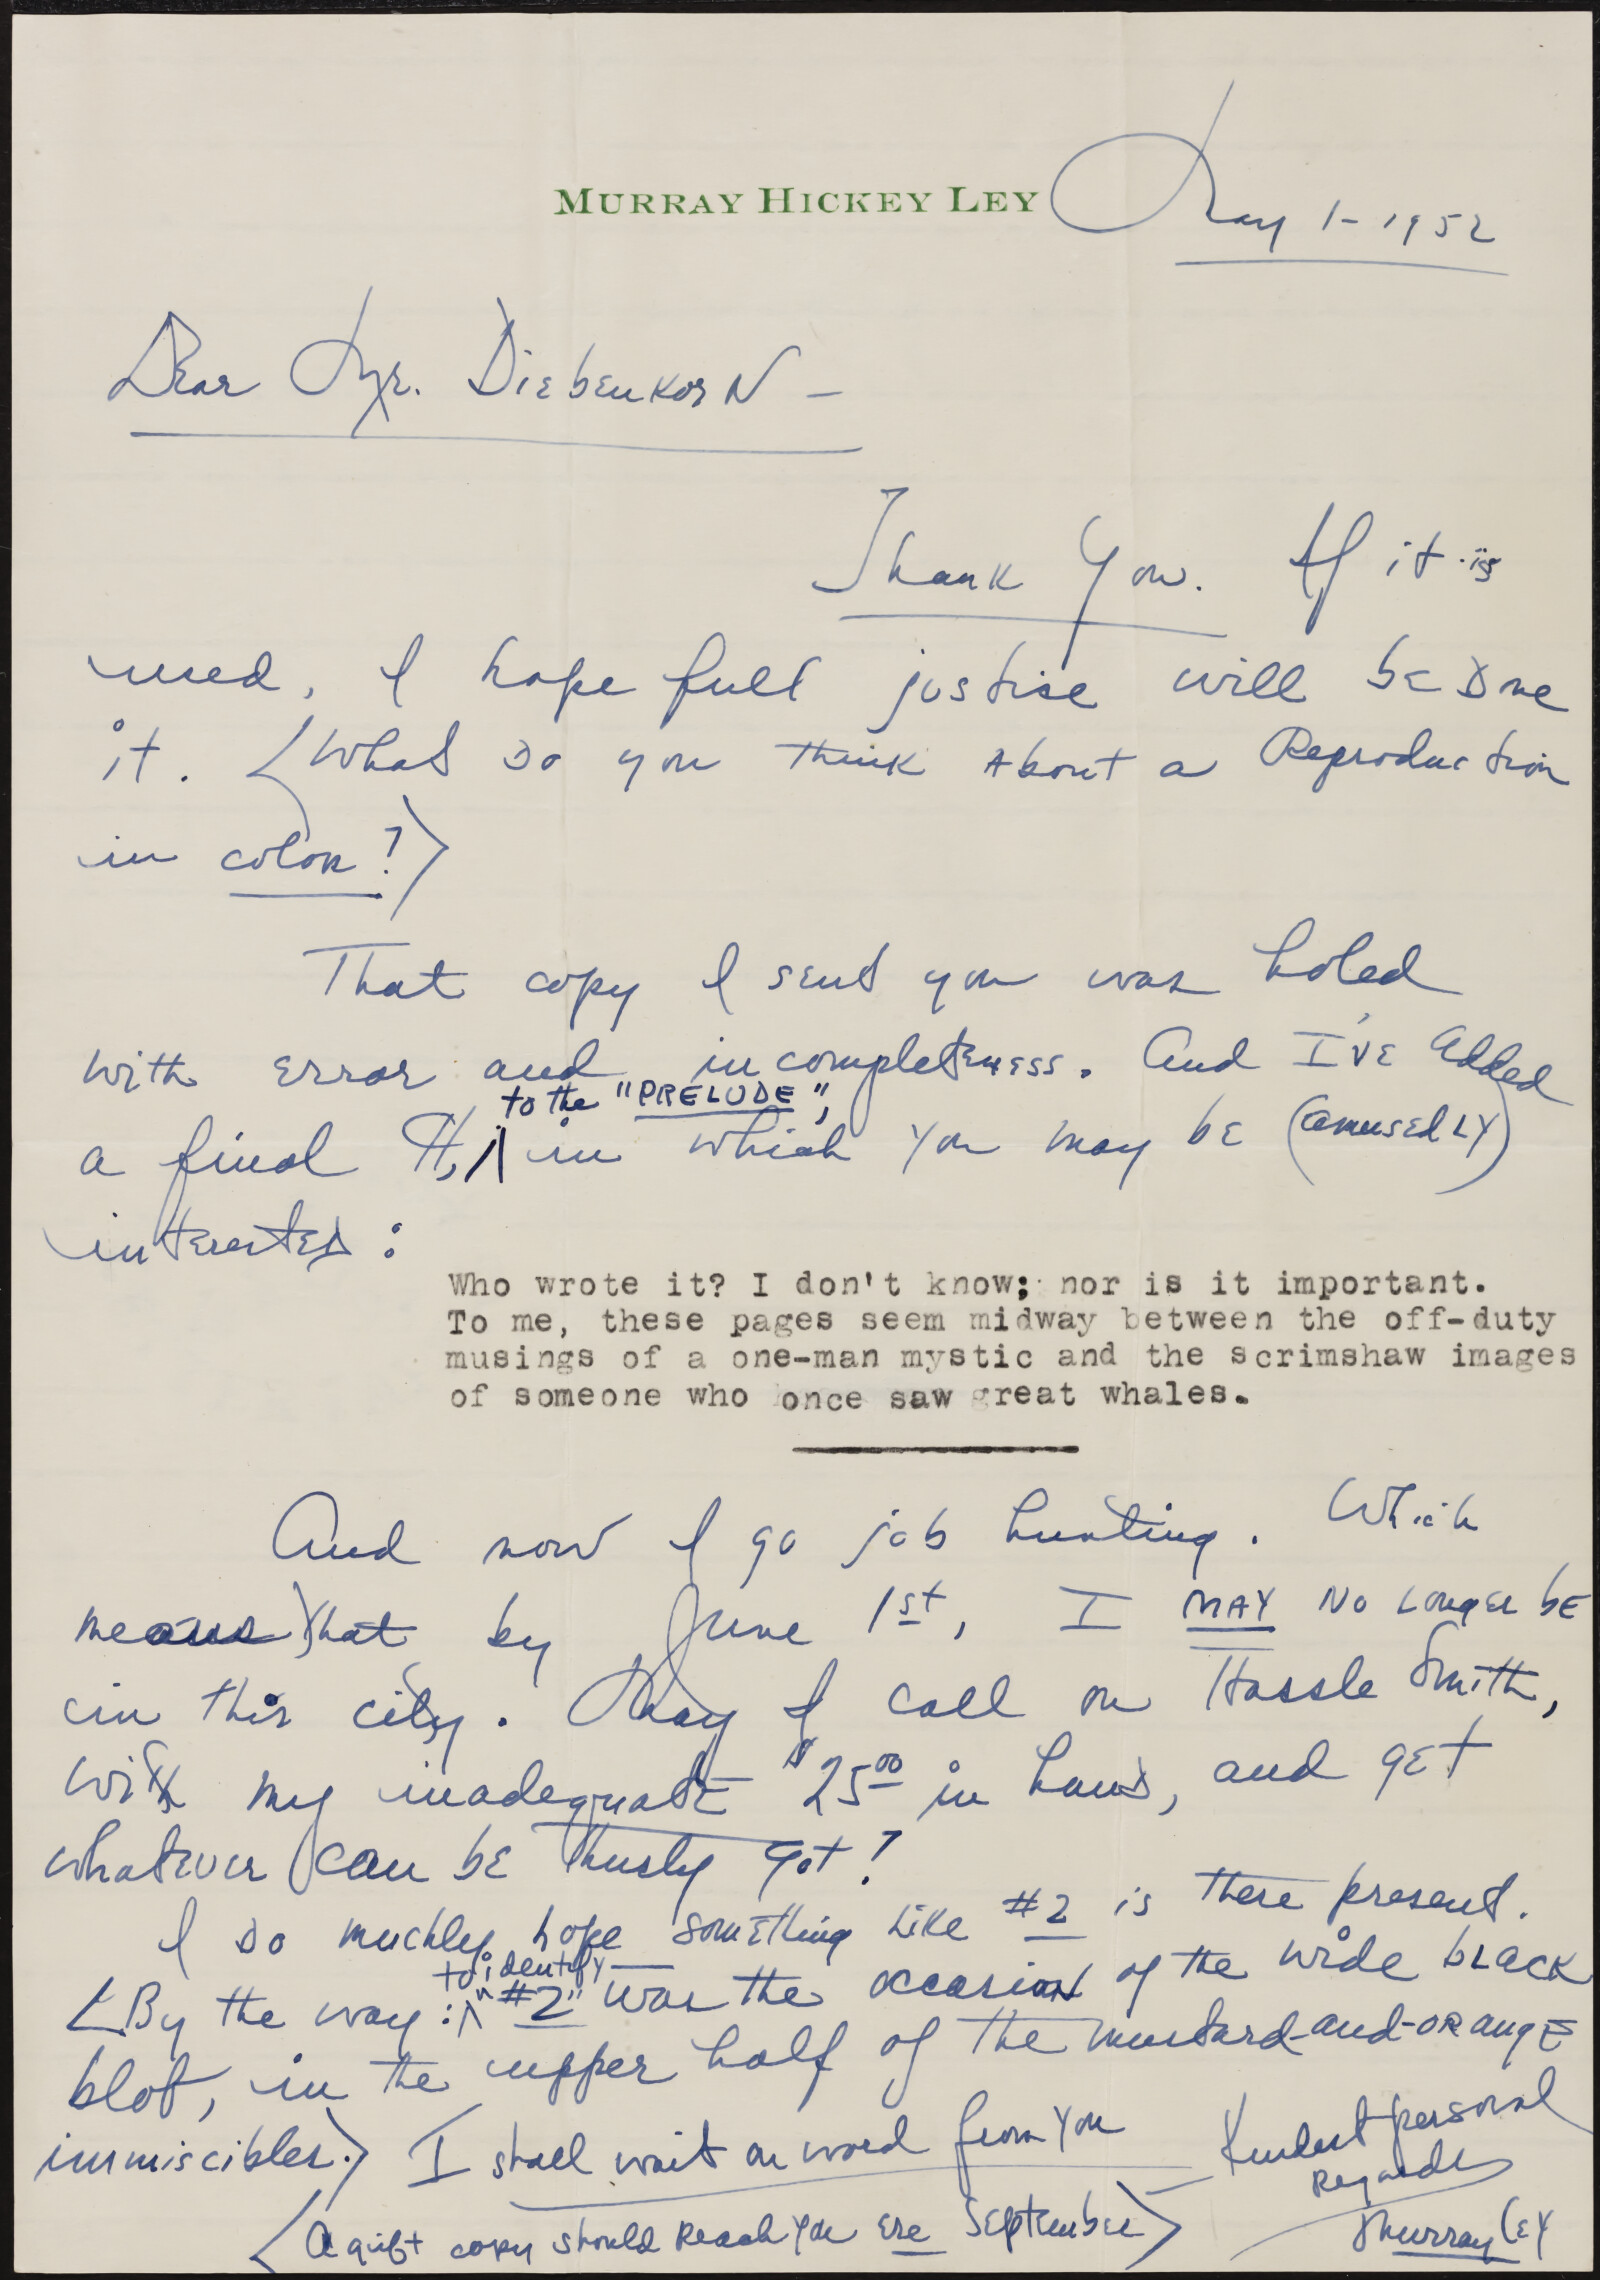 MURRAY HICKEY LEY
May 1 - 1952
Dear Mr. Diebenkorn -
Thank You. If it is
used, I hope full justise will be done
it. <What do you think about a Reproduction
in color?>
That copy I sent you was holed
with error and incompleteness. And I've added
to the "PRELUDE",
a final ¶, ∧ in which you may be (amusedly)
interested:
Who wrote it? I don't know; nor is it important.
To me, these pages seem midway between the off-duty
musings of a one-man mystic and the scrimshaw images
of someone who once saw great whales.
And now I go job hunting. Which
means that by June 1st, I MAY no longer be
in this city. May I call on Hassle Smith,
with my inadequate $25 00 in hand, and get
whatever can be thusly got?
I do muchly hope something like #2 is there present.
to identify
<By the way: ∧ "#2" was the occasion of the wide black
blot, in the upper half of the mustard-and-orange
immiscibles.> I shall wait on word from you
Kindest personal
Regards
<A gift copy should reach you ere September>
Murray Ley